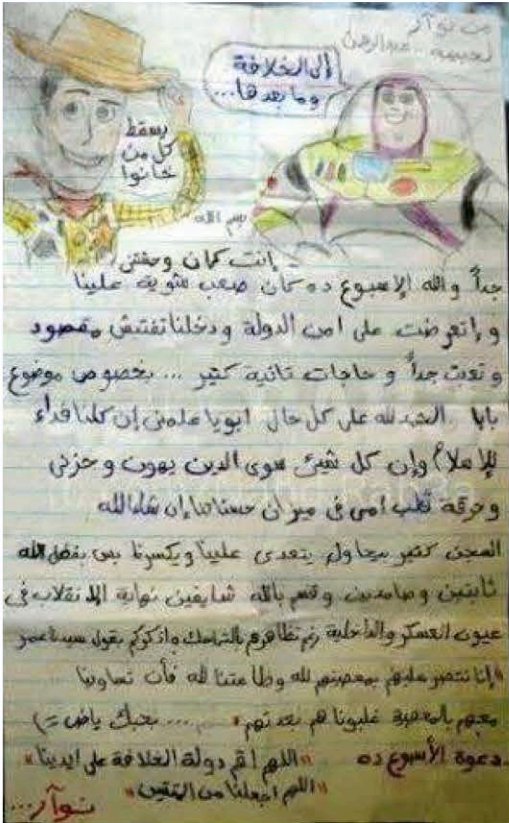 من نوآر
لحبيبه .. عبدالرحمن
إلى الخلافة
وما بعدها...
يسقط
كل من
خانوا
بسم الله
إنت كمان وحشتني
جداً والله الإسبوع ده كمان صعب شوية علينا
و إتعرضت على امن الدولة ودخلنا تفتيش مقصود
و تعبت جداً و حاجات تانية كتير ... بخصوص موضوع
بابا .. الحمد لله على كل حال ابويا علمني إن كلنا فداء
للإسلام وإن كل شيئ سوى الدين يهون و حزني
و حرقة قلب امى فى ميزان حسناتنا إن شاء الله
السجن كتير بيحاول يتعدى علينا ويكسرنا بس بفضل الله
ثابتين و صامدين وقسم بالله شايفين نهاية الإنقلاب فى
عيون العسكر والداخلية رغم تظاهرهم بالتماسك واذكركم بقول سيدنا عمر
"إنا ننتصر عليهم بمعصيتهم لله وطاعتنا لله فأن تساوينا
معهم بالمعصية غلبونا هم بعدتهم" ... بحبك ياض =)
دعوة الأسبوع ده "اللهم اقم دولة الخلافة على ايدينا"
"اللهم اجعلنا من المتقين"
نوآر...